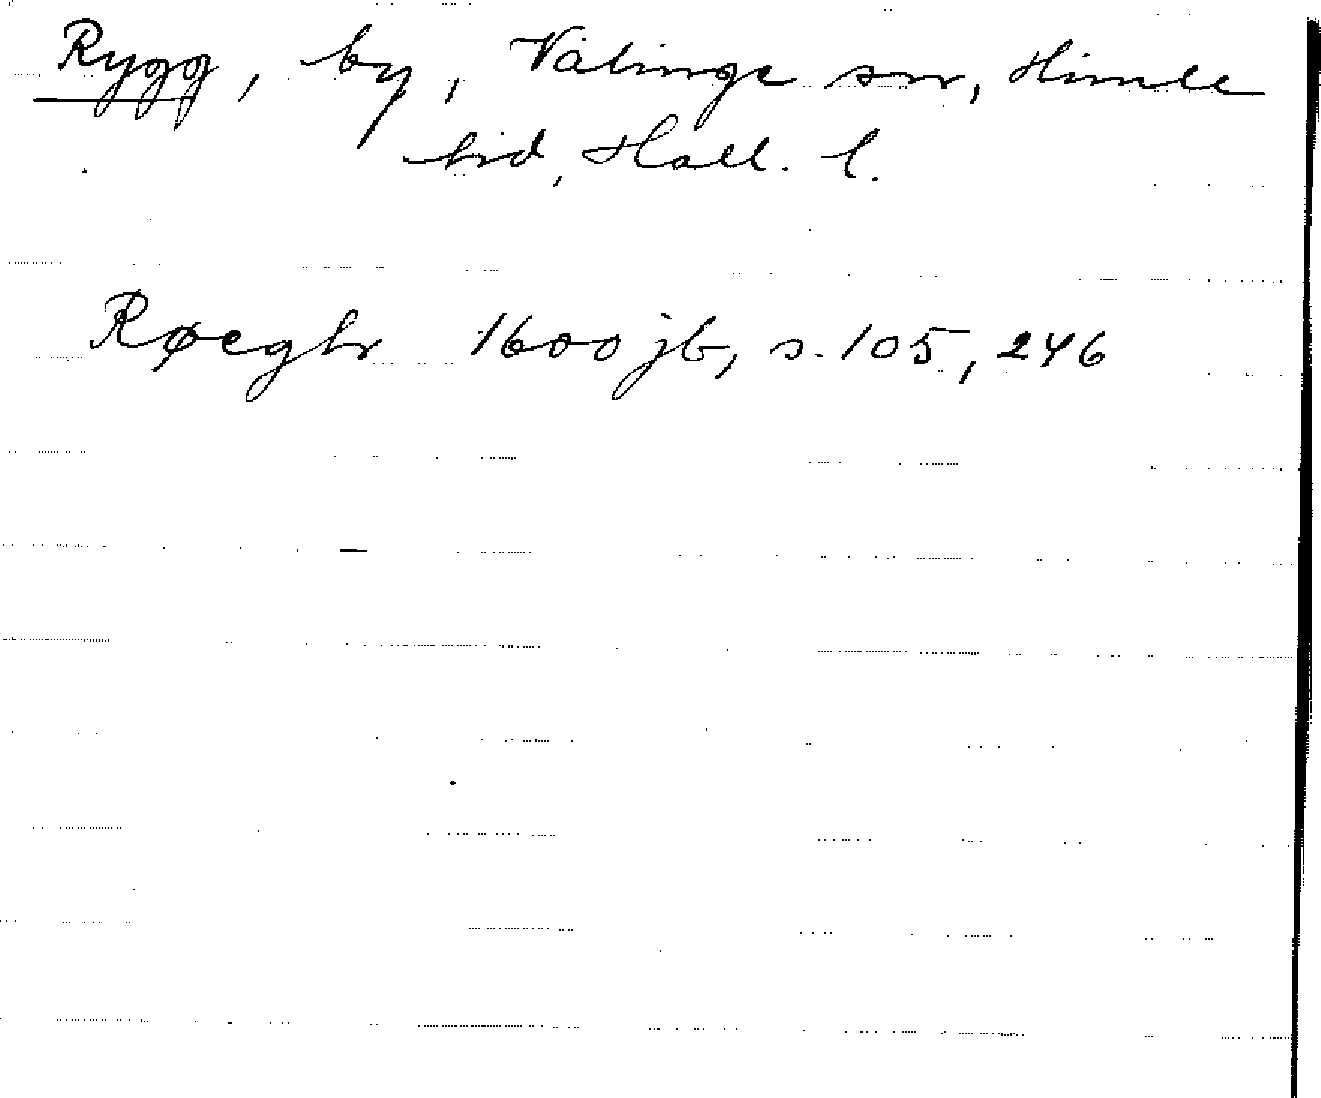 Rygg, by, Valinge sn, Himle
hd, Hall. l.
Røegh 1600 jb, s. 105, 246